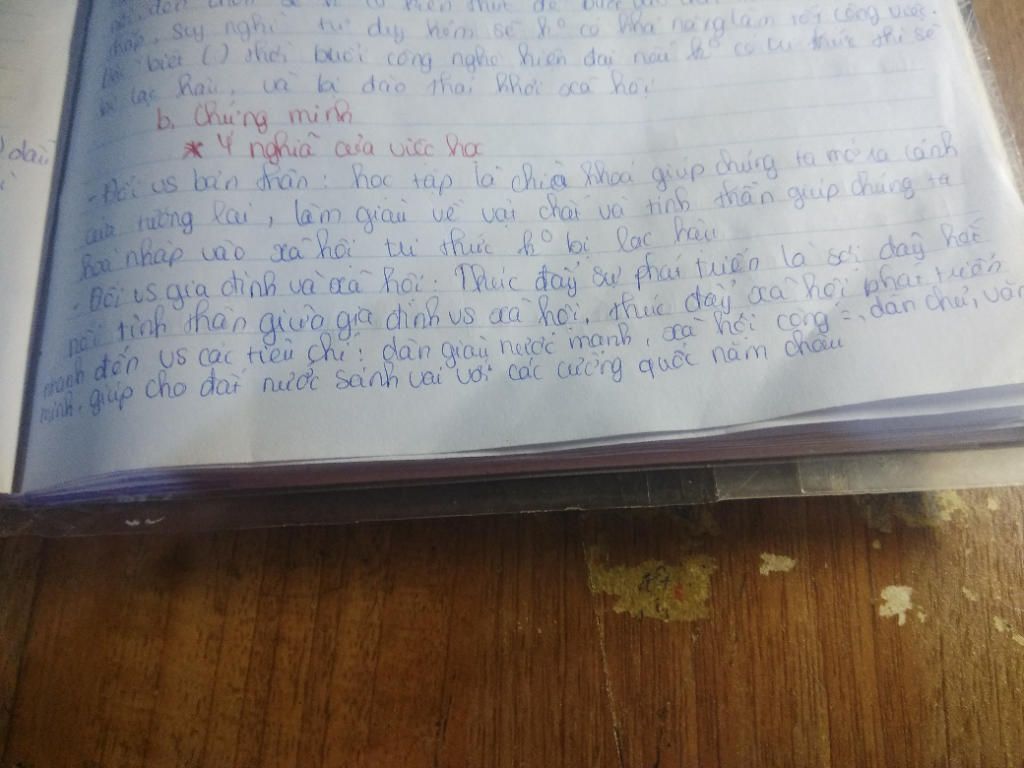 thấp, suy nghĩ tư duy kém sẽ ko có khả năng làm tốt công việc.
biệt () thời buổi công nghệ hiện đại nếu ko có tri thức thì sẽ
bị lạc hậu, và bị đào thải khỏi xã hội
b, Chứng minh
* Ý nghĩa của việc học
- Đối vs bản thân: học tập là chìa khoá giúp chúng ta mở ra cánh
cửa tương lai, làm giàu về vật chất và tinh thần giúp chúng ta
hoà nhập vào xã hội tri thức ko bị lạc hậu
- Đối vs gia đình và xã hội: Thúc đẩy sự phát triển là sợi dây kết
nối tinh thần giữa gia đình vs xã hội, thúc đẩy xã hội phát triển
mạnh đến vs các tiêu chí: dân giàu nước mạnh, xã hội công =, dân chủ, văn
minh, giúp cho đất nước sánh vai với các cường quốc năm châu
dẫn